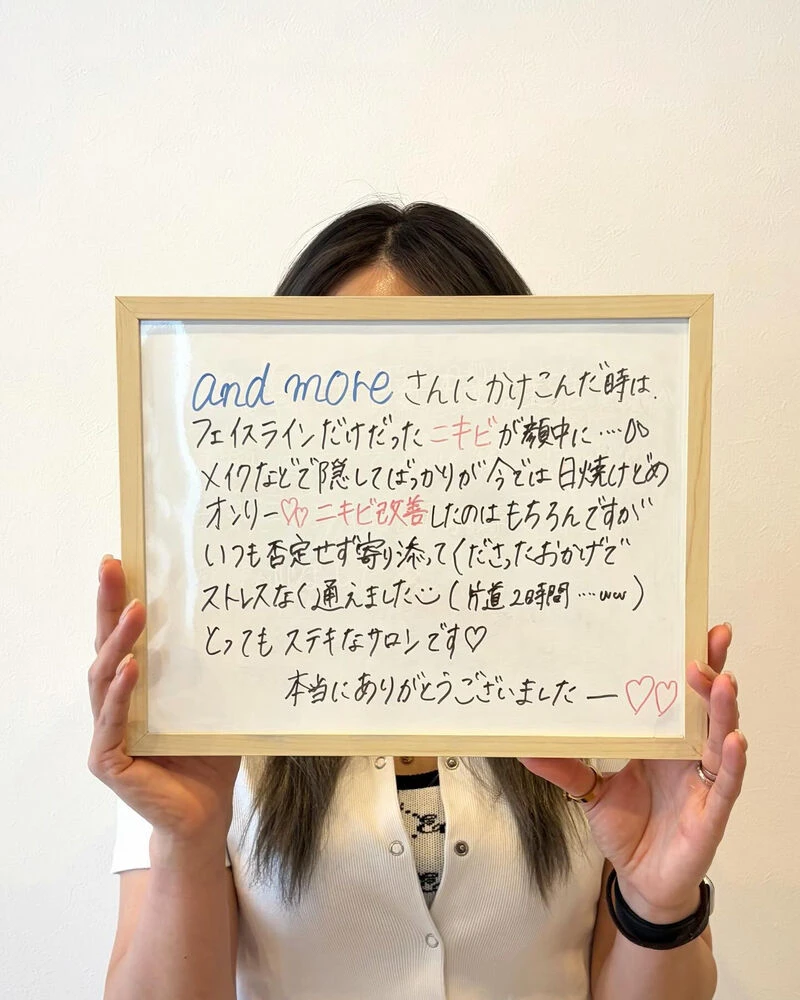 and more さんにかけこんだ時は、
フェイスラインだけだったニキビが顔中に…
メイクなどで隠してばっかりが今では日焼けどめ
オンリー♡♡ニキビ改善したのはもちろんですが
いつも否定せず寄り添ってくださったおかげで
ストレスなく通えました(片道2時間…ww)
とってもステキなサロンです♡
本当にありがとうございましたー♡♡